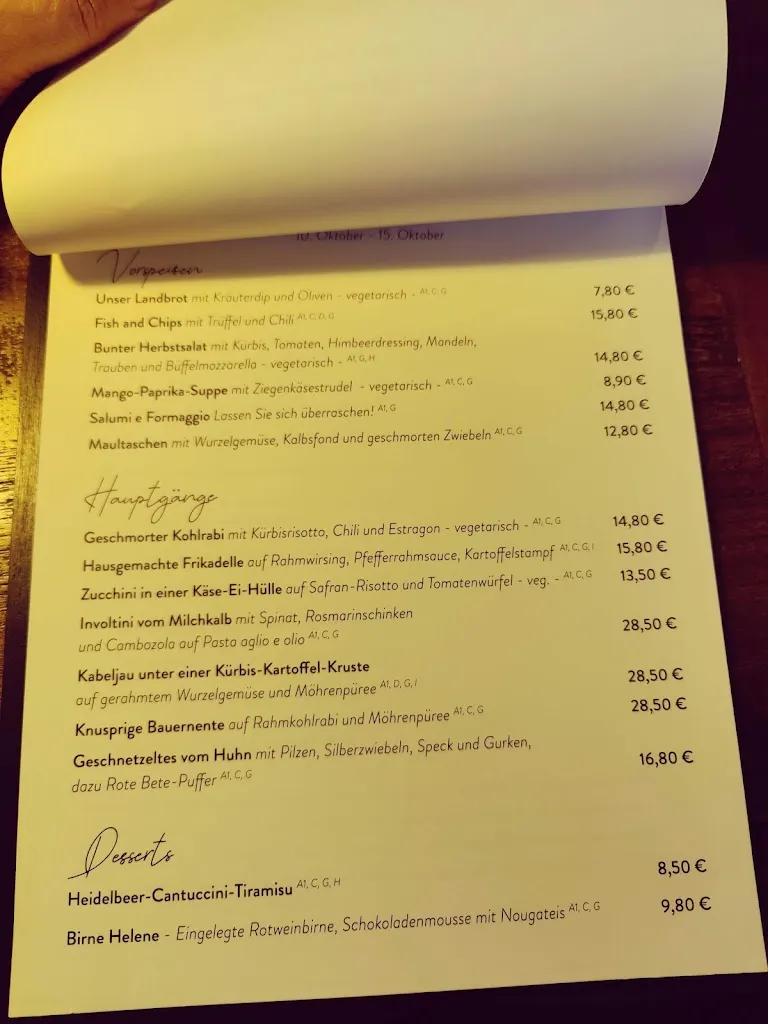 10. Oktober - 15. Oktober
Vorspeisen
Unser Landbrot mit Kräuterdip und Oliven - vegetarisch - A1, C, G 7,80 €
Fish and Chips mit Trüffel und Chili A1, C, D, G 15,80 €
Bunter Herbstsalat mit Kürbis, Tomaten, Himbeerdressing, Mandeln,
Trauben und Büffelmozzarella - vegetarisch - A1, G, H 14,80 €
Mango-Paprika-Suppe mit Ziegenkäsestrudel - vegetarisch - A1, C, G 8,90 €
Salumi e Formaggio Lassen Sie sich überraschen! A1, G 14,80 €
Maultaschen mit Wurzelgemüse, Kalbsfond und geschmorten Zwiebeln A1, C, G 12,80 €
Hauptgänge
Geschmorter Kohlrabi mit Kürbisrisotto, Chili und Estragon - vegetarisch - A1, C, G 14,80 €
Hausgemachte Frikadelle auf Rahmwirsing, Pfefferrahmsauce, Kartoffelstampf A1, C, G, I 15,80 €
Zucchini in einer Käse-Ei-Hülle auf Safran-Risotto und Tomatenwürfel - veg. - A1, C, G 13,50 €
Involtini vom Milchkalb mit Spinat, Rosmarinschinken
und Cambozola auf Pasta aglio e olio A1, C, G 28,50 €
Kabeljau unter einer Kürbis-Kartoffel-Kruste
auf gerahmtem Wurzelgemüse und Möhrenpüree A1, D, G, I 28,50 €
Knusprige Bauernente auf Rahmkohlrabi und Möhrenpüree A1, C, G 28,50 €
Geschnetzeltes vom Huhn mit Pilzen, Silberzwiebeln, Speck und Gurken,
dazu Rote Bete-Puffer A1, C, G 16,80 €
Desserts
Heidelbeer-Cantuccini-Tiramisu A1, C, G, H 8,50 €
Birne Helene - Eingelegte Rotweinbirne, Schokoladenmousse mit Nougateis A1, C, G 9,80 €